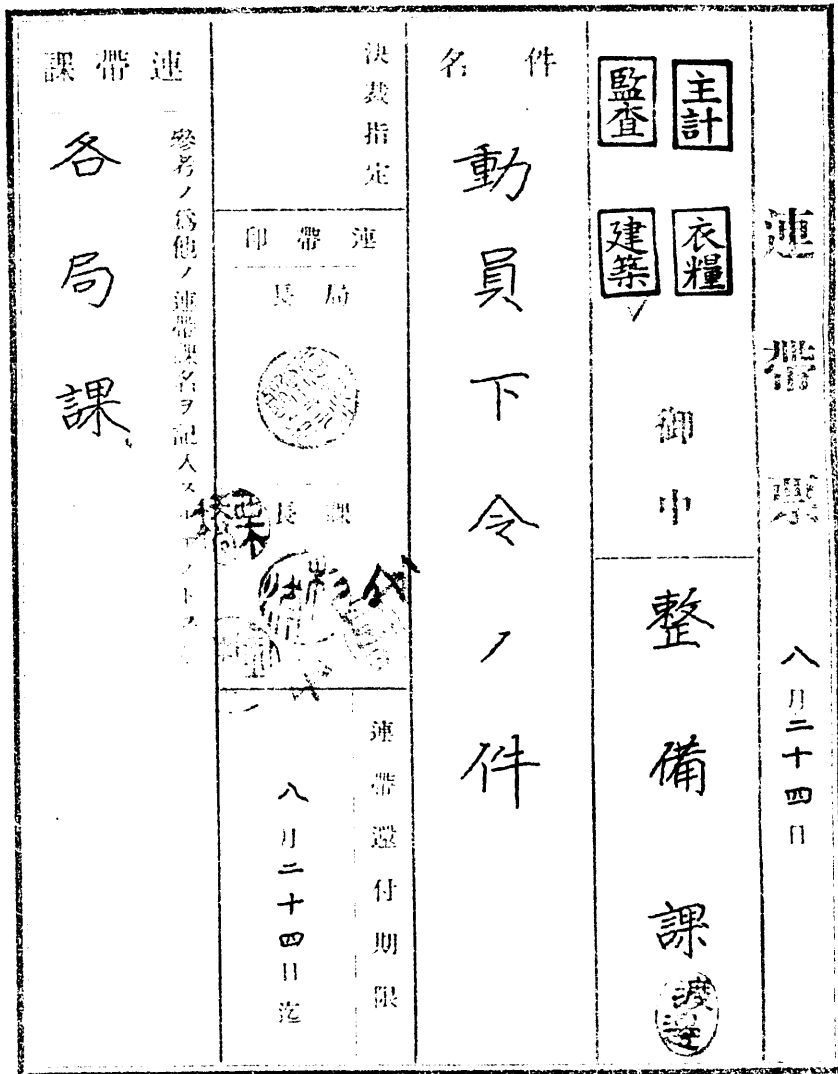 連帶票
八月二十四日
主計
衣糧
監査
建築
御中
整備課
渡邊
件名
動員下令ノ件
決裁指定
連帶印
局長
課長
連帶還付期限
八月二十四日迄
連帶課
參考ノ爲他ノ連帶課名ヲ記入ス
各局課